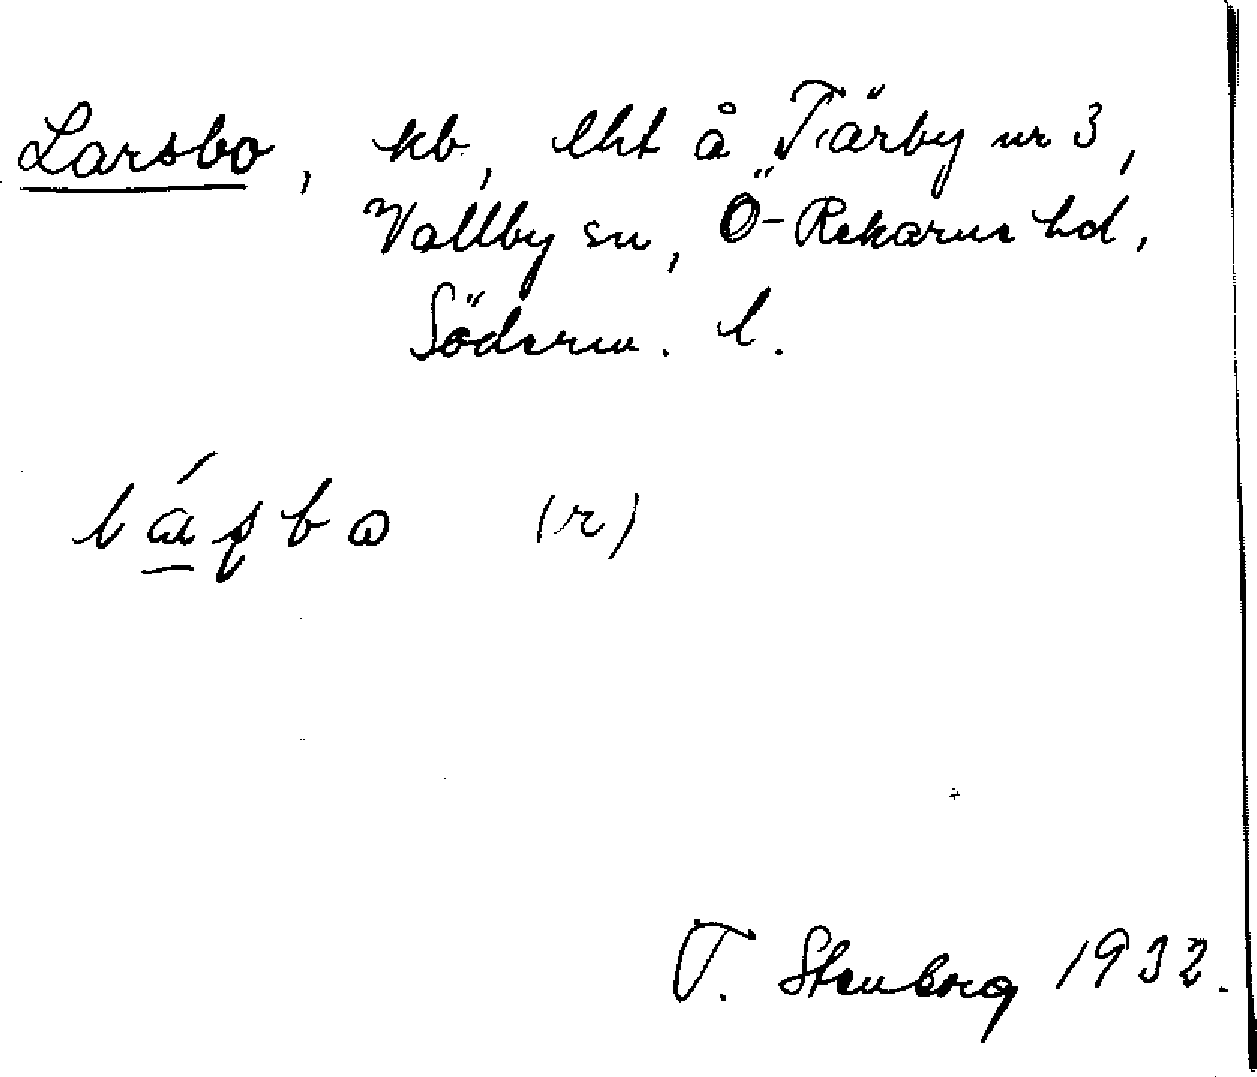 Larsbo, kb, lht å Tiärby nr 3,
Vallby sn, Ö-Rekarne hd,
Söderm. l.
(r)
T. Stenborg 1932.